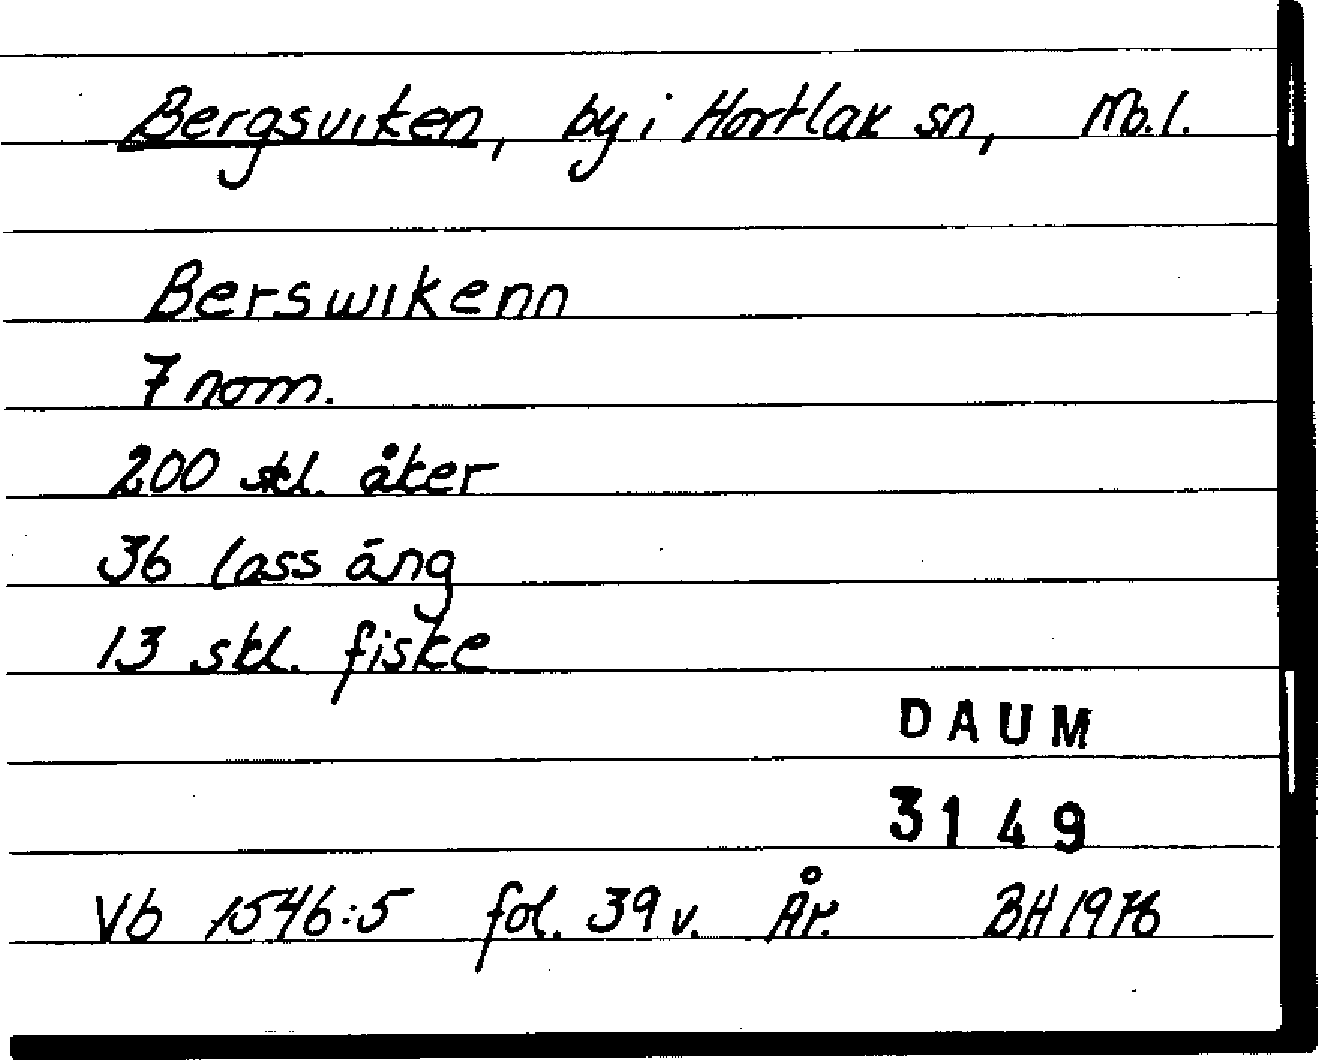 Bergsviken, by i Hortlax sn, Nb.l.
Berswikenn
7 nom.
200 skl. åker
36 lass äng
13 skl. fiske
DAUM
3149
Vb 1546:5 fol. 39 v. År. BH 1976